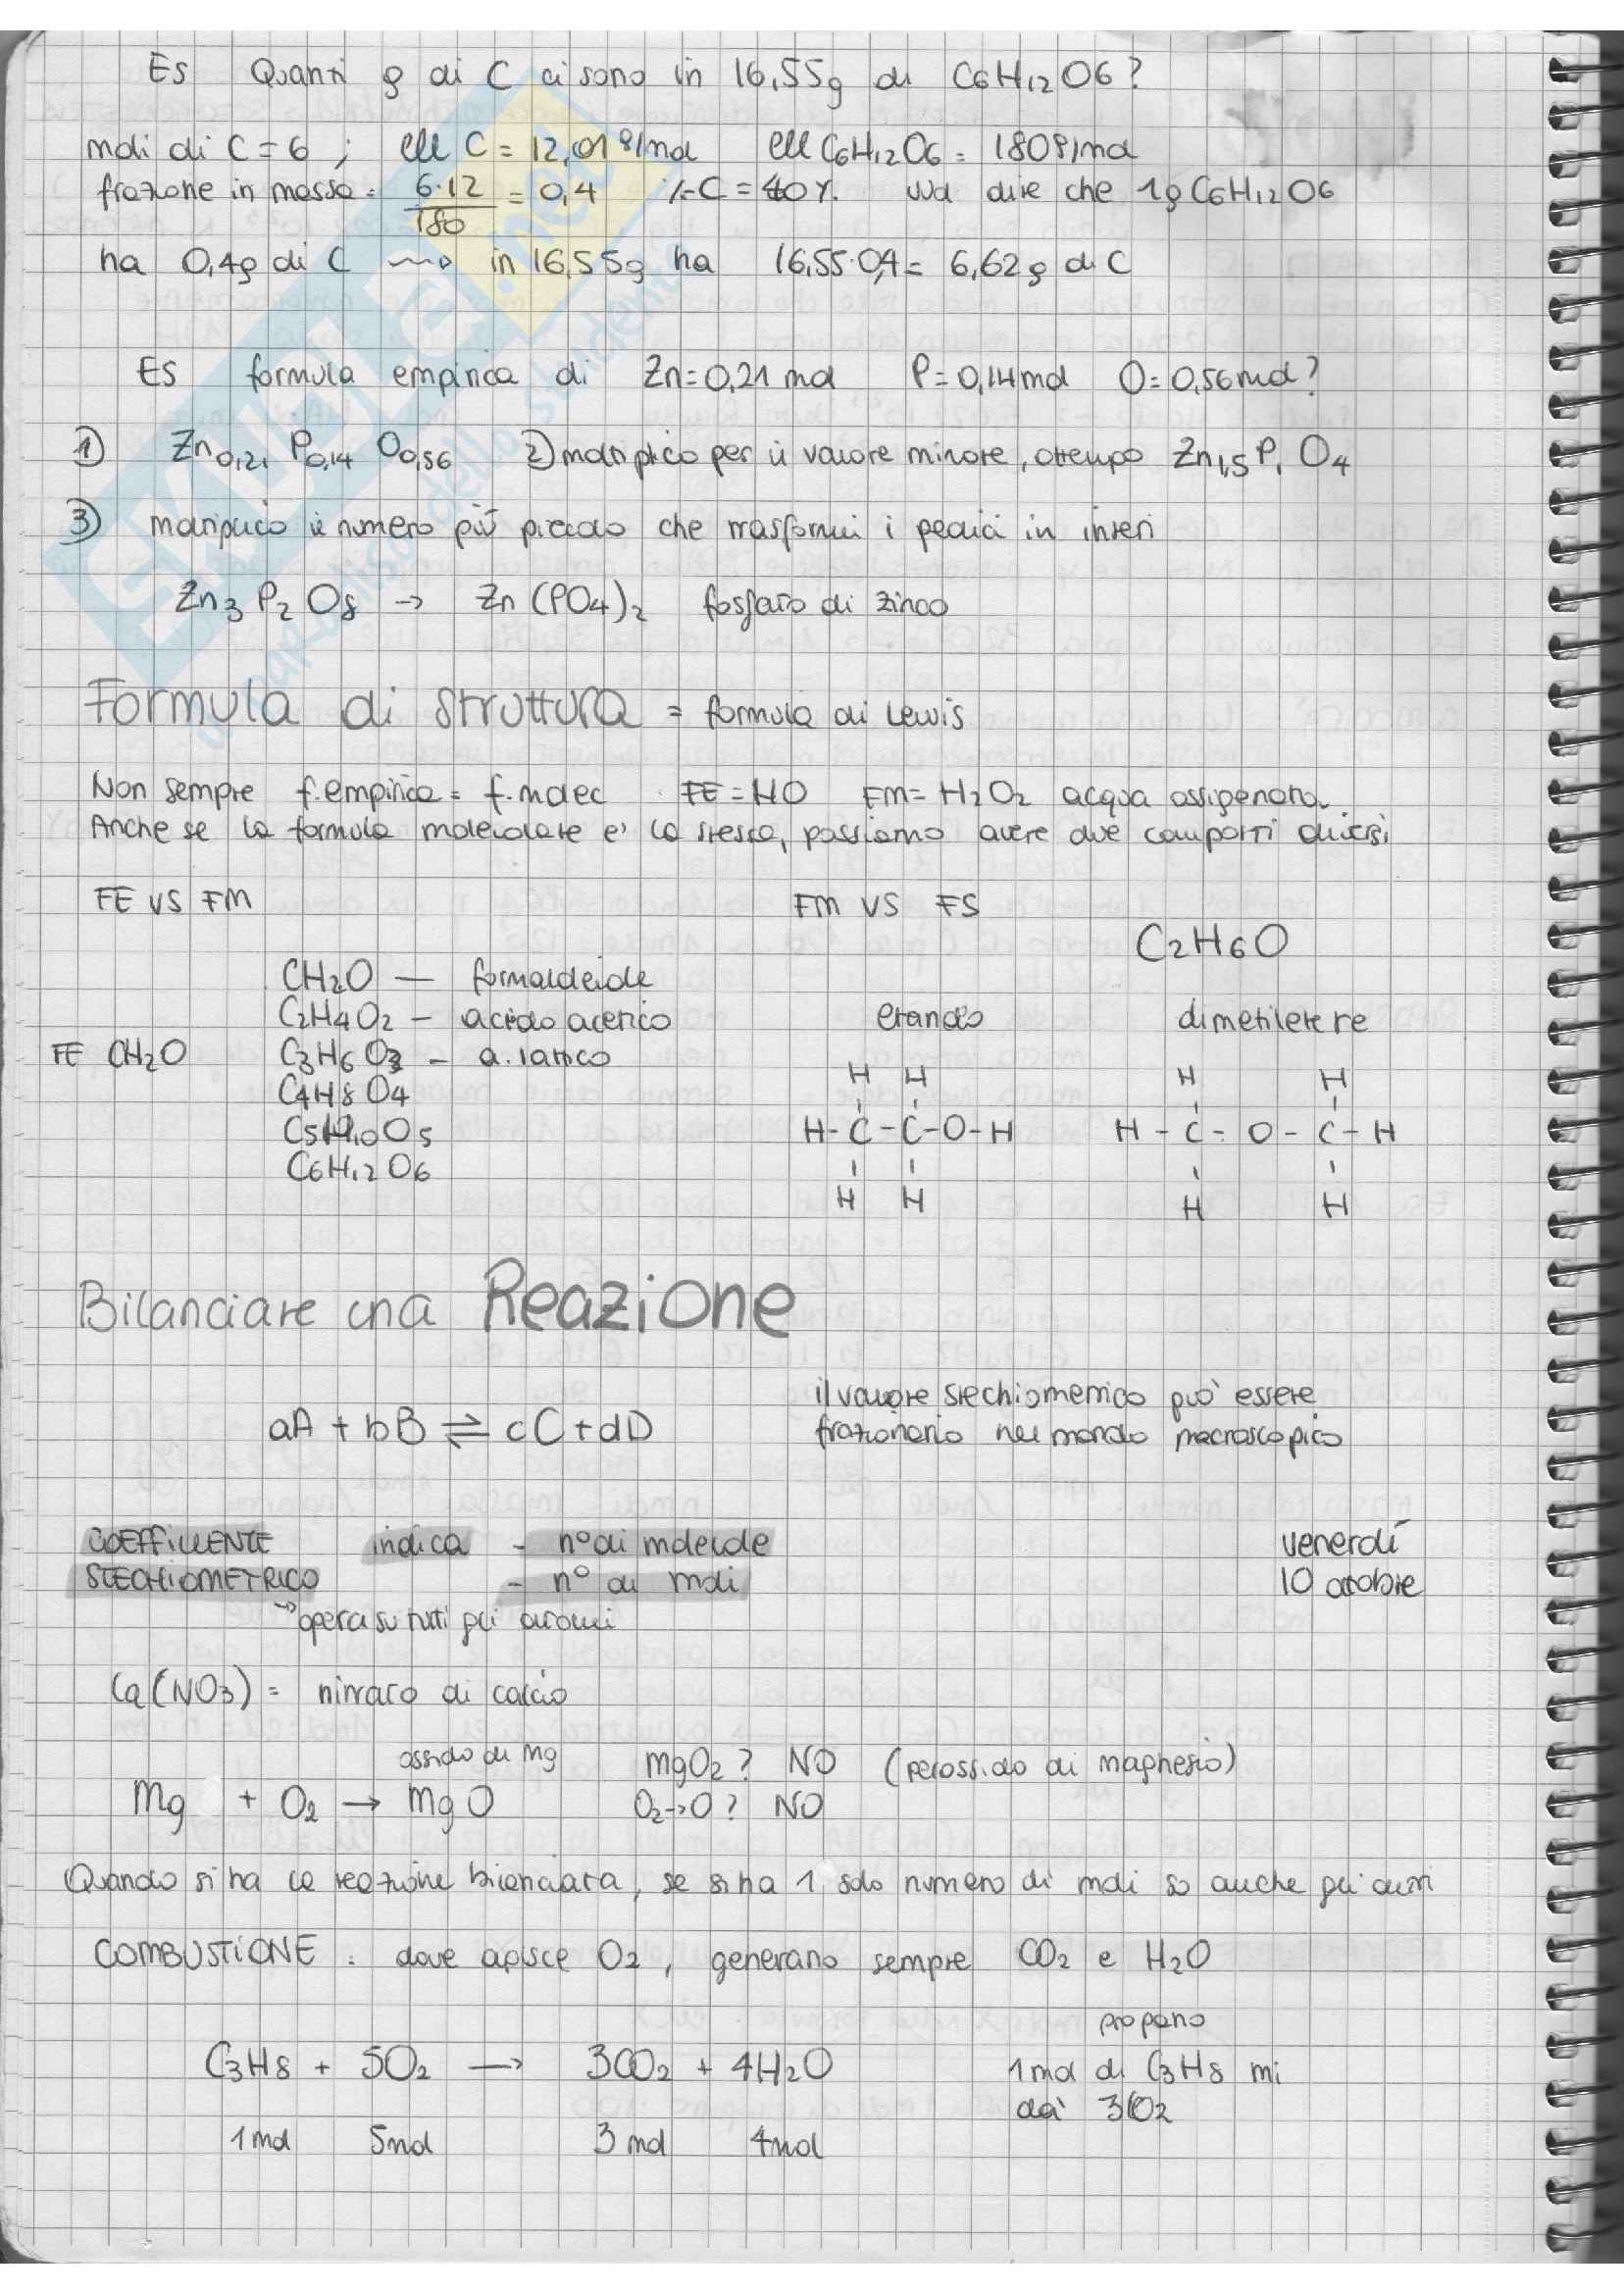 Es Quanti g di C ci sono in 16,55g di C6H12O6?
moli di C = 6 ; M C = 12,01 g/mol M C6H12O6 = 180 g/mol
frazione in massa = 6·12/180 = 0,4 % C = 40% vuol dire che 1g C6H12O6
ha 0,4g di C ⇝ in 16,55g ha 16,55·0,4 = 6,62 g di C
Es formula empirica di Zn=0,21 mol P=0,14mol O=0,56mol?
1) Zn0,21 P0,14 O0,56 2) moltiplico per il valore minore, ottengo Zn1,5 P1 O4
3) moltiplico il numero più piccolo che trasformi i pedici in interi
Zn3 P2 O8 → Zn (PO4)2 fosfato di zinco
Formula di struttura = formula di Lewis
Non sempre f.empirica = f.molec FE = HO FM = H2O2 acqua ossigenata.
Anche se la formula molecolare e' la stessa, possiamo avere due composti diversi
FE VS FM FM VS FS
C2H6O
CH2O — formaldeide
C2H4O2 — acido acetico etanolo dimetiletere
FE CH2O C3H6O3 — a. lattico
C4H8O4 H H H H
C5H10O5 H-C-C-O-H H-C-O-C-H
C6H12O6
H H H H
Bilanciare una Reazione
il valore stechiometrico può essere
aA + bB ⇌ cC + dD frazionario nel mondo macroscopico
COEFFICIENTE indica - n° di molecole venerdì
STECHIOMETRICO - n° di moli 10 ottobre
→ opera su tutti gli atomi
Ca(NO3) = nitrato di calcio
ossido di Mg MgO2? NO (perossido di magnesio)
Mg + O2 → MgO O2→O? NO
Quando si ha la reazione bilanciata, se si ha 1 solo numero di moli so anche gli altri
COMBUSTIONE : dove agisce O2, generano sempre CO2 e H2O
propano
C3H8 + 5O2 → 3CO2 + 4H2O 1mol di C3H8 mi
dà 3CO2
1mol 5mol 3mol 4mol